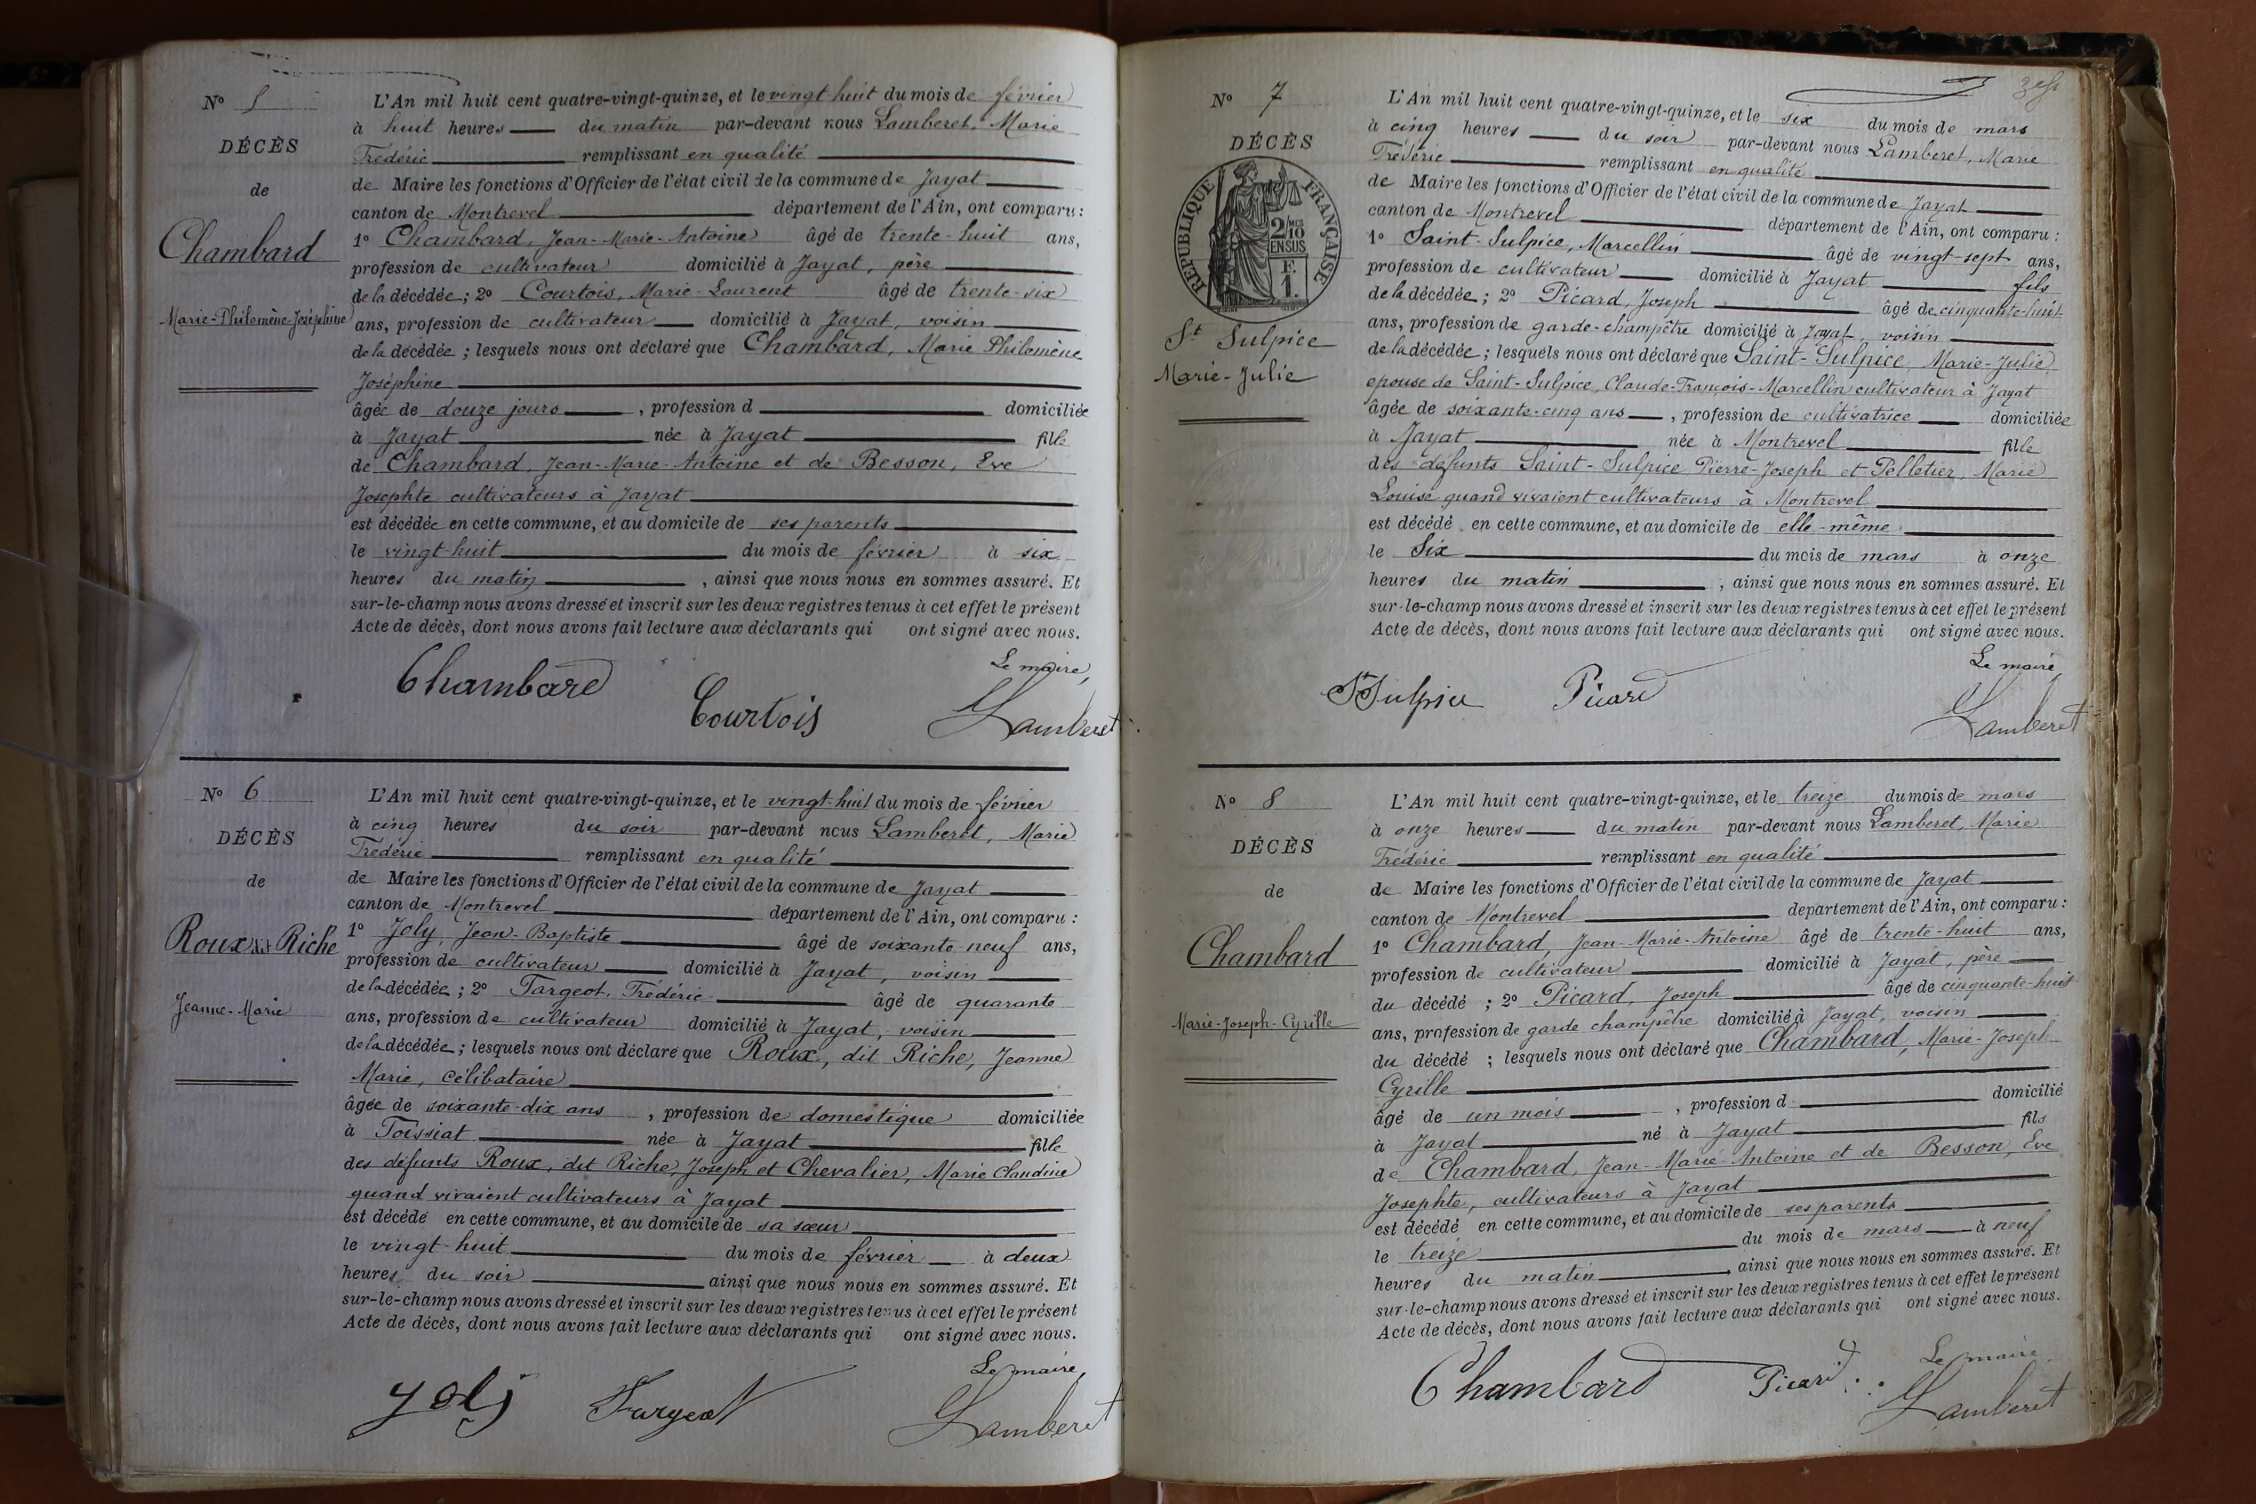 N° 5
DÉCÈS
de
Chambard
Marie-Philomène-Joséphine
L'An mil huit cent quatre-vingt-quinze, et le vingt-huit du mois de février
à huit heures du matin par-devant nous Lamberet, Marie
Frédéric remplissant en qualité
de Maire les fonctions d'Officier de l'état civil de la commune de Jayat
canton de Montrevel département de l'Ain, ont comparu :
1° Chambard, Jean-Marie-Antoine âgé de trente-huit ans,
profession de cultivateur domicilié à Jayat, père
de la décédée ; 2° Courtois, Marie-Laurent âgé de trente-six
ans, profession de cultivateur domicilié à Jayat, voisin
de la décédée ; lesquels nous ont déclaré que Chambard, Marie Philomène
Joséphine
âgée de douze jours , profession d domiciliée
à Jayat née à Jayat fille
de Chambard, Jean-Marie-Antoine et de Besson, Eve
Josephte cultivateurs à Jayat
est décédée en cette commune, et au domicile de ses parents
le vingt-huit du mois de février à six
heures du matin , ainsi que nous nous en sommes assuré. Et
sur-le-champ nous avons dressé et inscrit sur les deux registres tenus à cet effet le présent
Acte de décès, dont nous avons fait lecture aux déclarants qui ont signé avec nous.
Le maire,
Chambard
Courtois
Lamberet
N° 6
DÉCÈS
de
Roux dit Riche
Jeanne-Marie
L'An mil huit cent quatre-vingt-quinze, et le vingt-huit du mois de février
à cinq heures du soir par-devant nous Lamberet, Marie
Frédéric remplissant en qualité
de Maire les fonctions d'Officier de l'état civil de la commune de Jayat
canton de Montrevel département de l'Ain, ont comparu :
1° Joly, Jean-Baptiste âgé de soixante-neuf ans,
profession de cultivateur domicilié à Jayat, voisin
de la décédée ; 2° Fargeot, Frédéric âgé de quarante
ans, profession de cultivateur domicilié à Jayat, voisin
de la décédée ; lesquels nous ont déclaré que Roux, dit Riche, Jeanne
Marie, célibataire
âgée de soixante-dix ans , profession de domestique domiciliée
à Foissiat née à Jayat fille
des défunts Roux, dit Riche, Joseph et Chevalier, Marie Claudine
quand vivaient cultivateurs à Jayat
est décédé en cette commune, et au domicile de sa sœur
le vingt-huit du mois de février à deux
heures du soir ainsi que nous nous en sommes assuré. Et
sur-le-champ nous avons dressé et inscrit sur les deux registres tenus à cet effet le présent
Acte de décès, dont nous avons fait lecture aux déclarants qui ont signé avec nous.
Le maire,
Joly
Fargeot
Lamberet
N° 7
DÉCÈS
RÉPUBLIQUE FRANÇAISE
2/10
EN SUS
F.
1.
St Sulpice
Marie-Julie
L'An mil huit cent quatre-vingt-quinze, et le six du mois de mars
à cinq heures du soir par-devant nous Lamberet, Marie
Frédéric remplissant en qualité
de Maire les fonctions d'Officier de l'état civil de la commune de Jayat
canton de Montrevel département de l'Ain, ont comparu :
1° Saint-Sulpice, Marcellin âgé de vingt-sept ans,
profession de cultivateur domicilié à Jayat fils
de la décédée ; 2° Picard, Joseph âgé de cinquante-huit
ans, profession de garde-champêtre domicilié à Jayat, voisin
de la décédée ; lesquels nous ont déclaré que Saint-Sulpice, Marie-Julie
epouse de Saint-Sulpice, Claude-François-Marcellin cultivateur à Jayat
âgée de soixante-cinq ans , profession de cultivatrice domiciliée
à Jayat née à Montrevel fille
des défunts Saint-Sulpice Pierre-Joseph et Pelletier, Marie
Louise quand vivaient cultivateurs à Montrevel
est décédé en cette commune, et au domicile de elle-même
le Six du mois de mars à onze
heures du matin , ainsi que nous nous en sommes assuré. Et
sur-le-champ nous avons dressé et inscrit sur les deux registres tenus à cet effet le présent
Acte de décès, dont nous avons fait lecture aux déclarants qui ont signé avec nous.
Le maire
St Sulpice
Picard
Lamberet
N° 8
DÉCÈS
de
Chambard
Marie-Joseph-Cyrille
L'An mil huit cent quatre-vingt-quinze, et le treize du mois de mars
à onze heures du matin par-devant nous Lamberet, Marie
Frédéric remplissant en qualité
de Maire les fonctions d'Officier de l'état civil de la commune de Jayat
canton de Montrevel département de l'Ain, ont comparu :
1° Chambard, Jean-Marie-Antoine âgé de trente-huit ans,
profession de cultivateur domicilié à Jayat, père
du décédé ; 2° Picard, Joseph âgé de cinquante-huit
ans, profession de garde champêtre domicilié à Jayat, voisin
du décédé ; lesquels nous ont déclaré que Chambard, Marie-Joseph
Cyrille
âgé de un mois , profession d domicilié
à Jayat né à Jayat fils
de Chambard, Jean-Marie-Antoine et de Besson, Eve
Josephte, cultivateurs à Jayat
est décédé en cette commune, et au domicile de ses parents
le treize du mois de mars à neuf
heures du matin , ainsi que nous nous en sommes assuré. Et
sur-le-champ nous avons dressé et inscrit sur les deux registres tenus à cet effet le présent
Acte de décès, dont nous avons fait lecture aux déclarants qui ont signé avec nous.
Le maire
Chambard
Picard
Lamberet